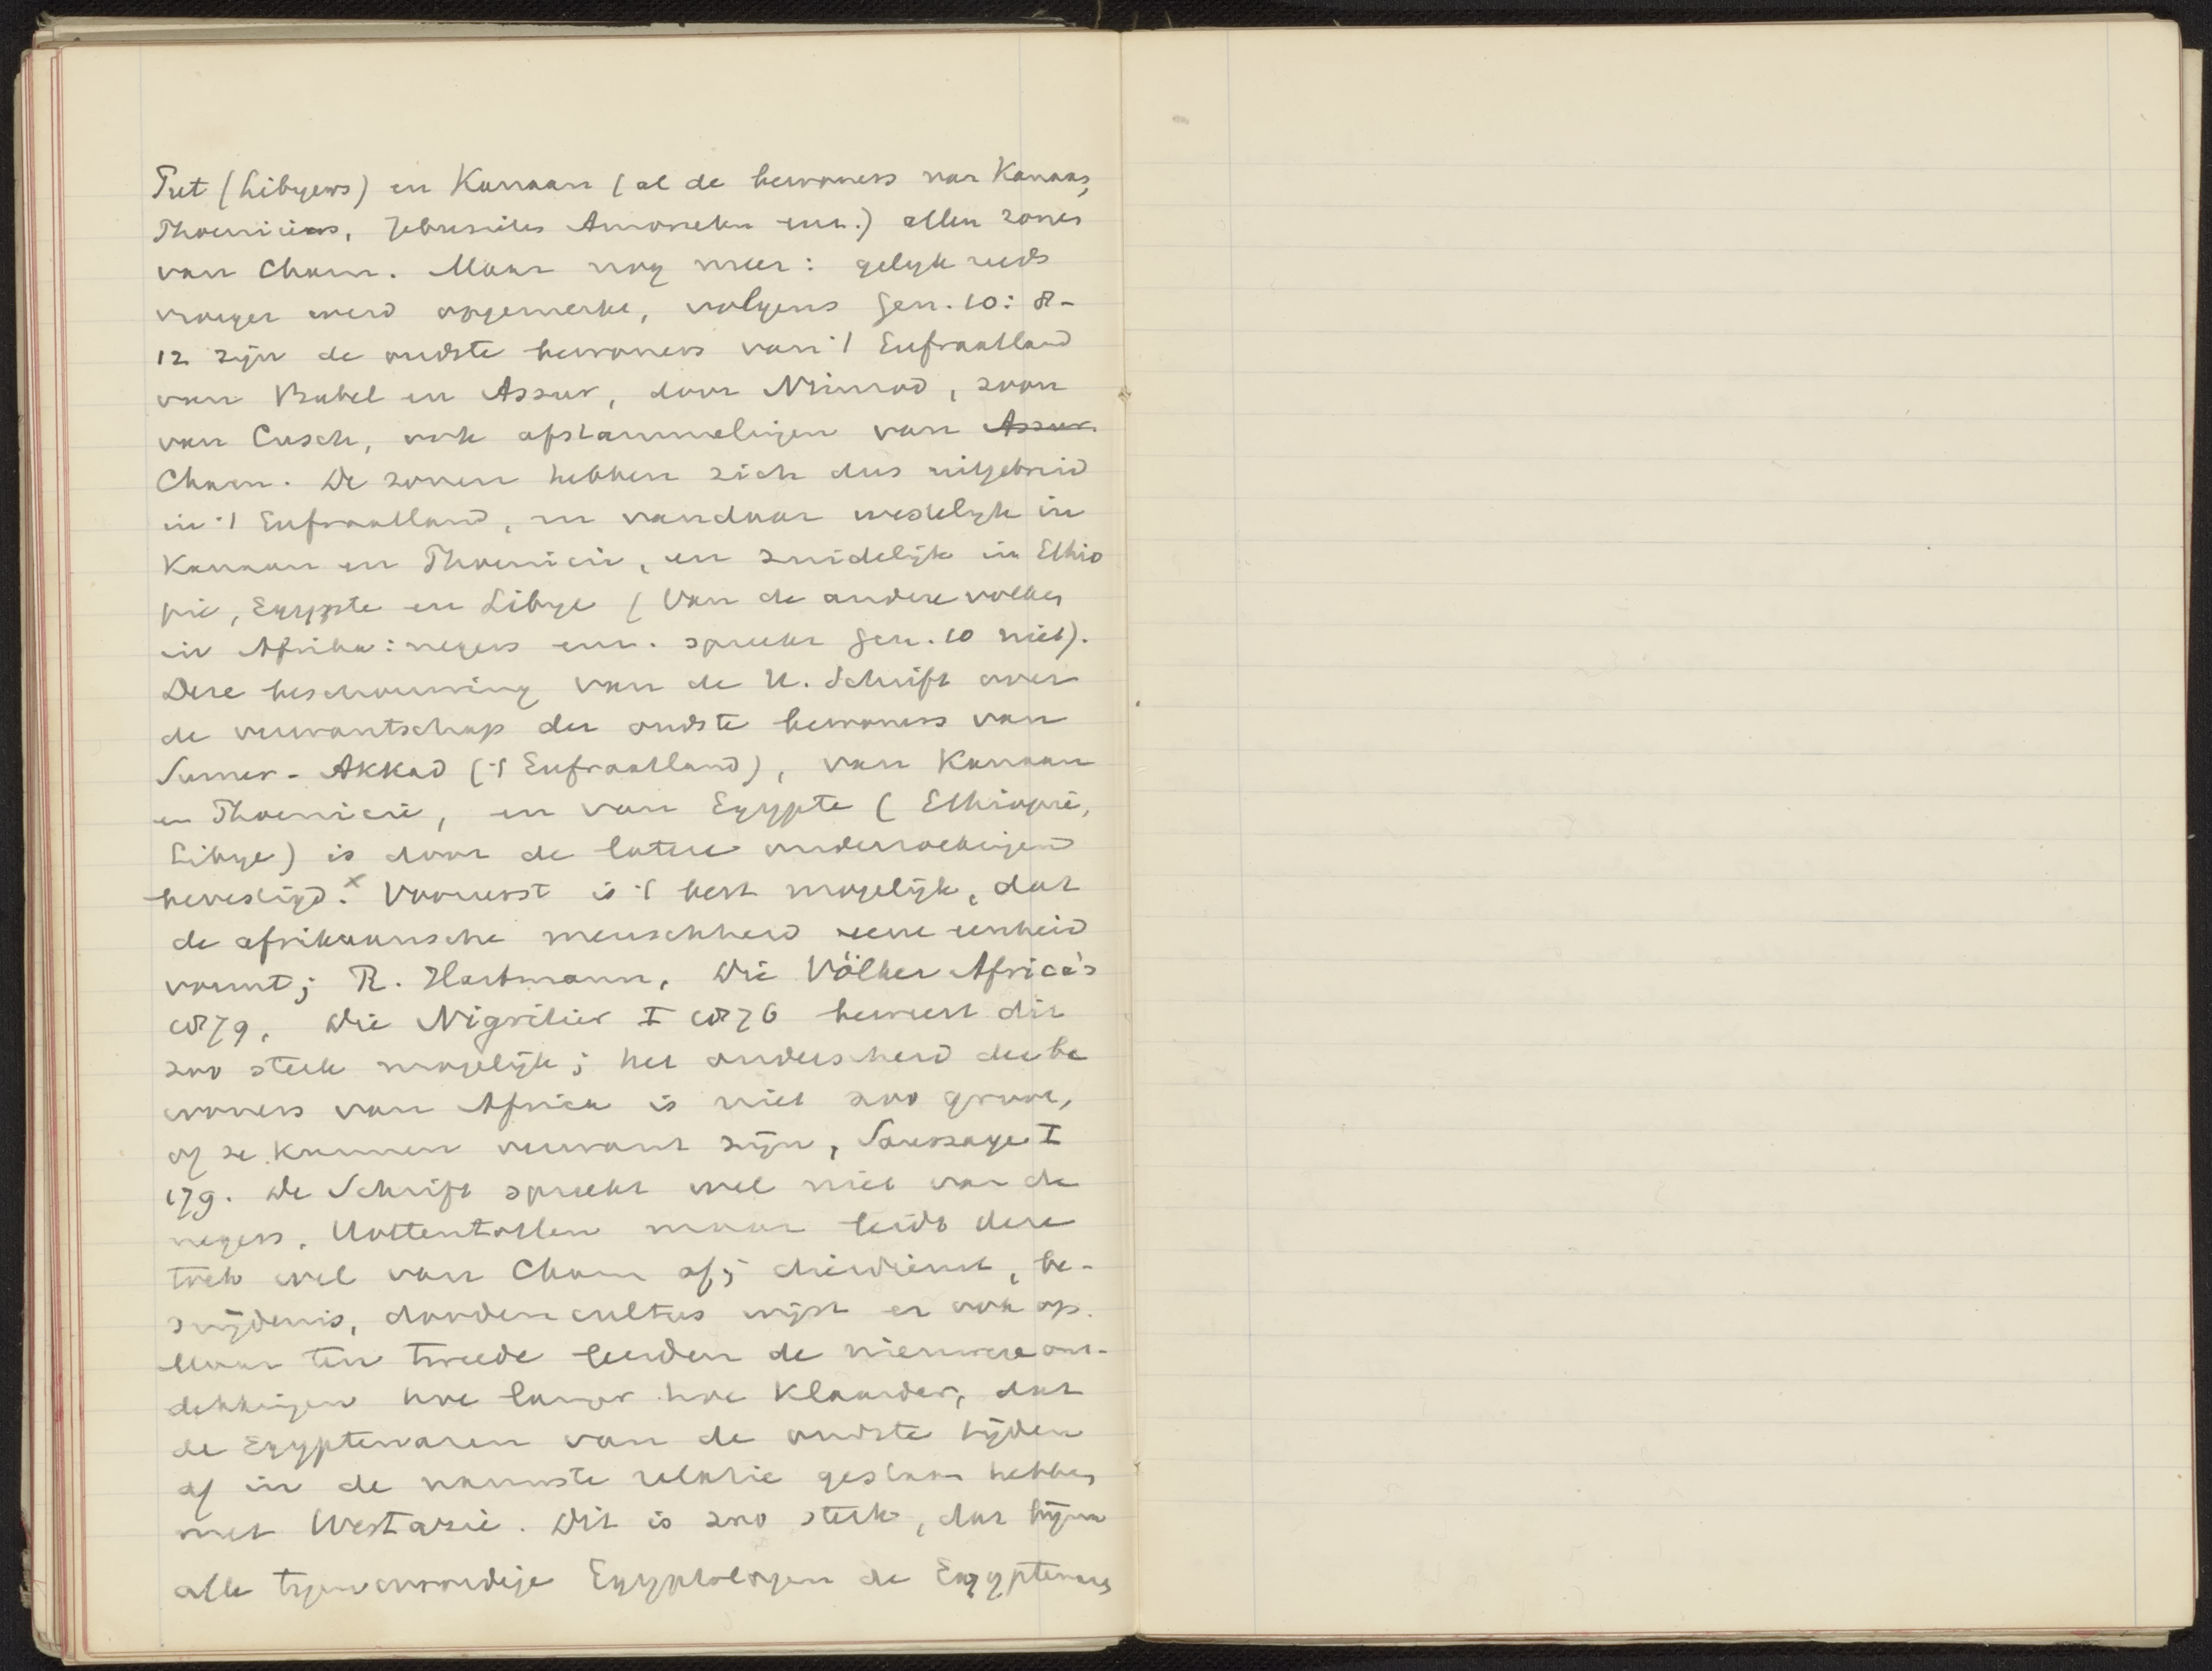 Put (Libyers) en Kanaan (al de bewoners van Kanaan,
Phoeniciers, Jebusites Amorieten enz.) allen zonen
van Cham. Maar nog meer: gelyk reeds
vroeger werd opgemerkt, volgens Gen. 10: 8-
12 zijn de oudste bewoners van 't Eufraatland
van Babel en Assur, door Nimrod, zoon
van Cusch, ook afstammelingen van Assur.
Cham. De zonen hebben zich dus uitgebreid
in 't Eufraatland, en vandaar westelijk in
Kanaan en Phoenicië, en zuidelijk in Ethio
pië, Egypte en Libye (Van de andere volken
in Afrika: negers enz. spreekt Gen. 10 niet).
Deze beschouwing van de H. Schrift over
de verwantschap der oudste bewoners van
Sumer-Akkad ('t Eufraatland), van Kanaan
en Phoenicië, en van Egypte (Ethiopië,
Libye) is door de latere onderzoekingen
bevestigd. x Vooreerst is 't best mogelijk, dat
de afrikaansche menschheid eene eenheid
vormt; R. Hartmann, Die Völker Africa's
1879, Die Nigritier I 1876 beweert dit
zoo sterk mogelijk; het onderscheid der be
woners van Africa is niet zoo groot,
of ze kunnen verwant zijn, Saussaye I
179. De Schrift spreekt wel niet van de
negers, Hottentotten maar leidt deze
toch wel van Cham af; dierdienst, be-
snijdenis, doodencultus wijst er ook op.
Maar ten tweede leerden de nieuwere ont-
dekkingen hoe langer hoe klaarder, dat
de Egyptenaren van de oudste tijden
af in de nauwste relatie gestaan hebben
met Westazië. Dit is zoo sterk, dat bijna
alle tegenwoordige Egyptologen de Egyptenaren